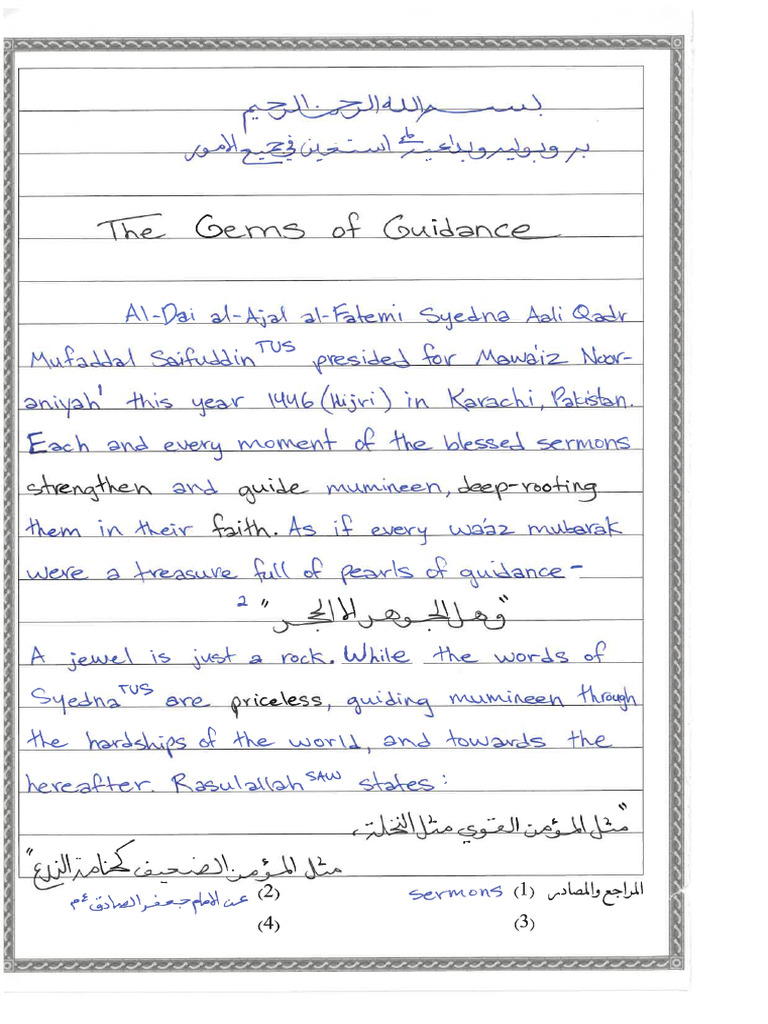 بسم الله الرحمن الرحيم
به وبوليه وبداعيه طع استعين في جميع الامور
The Gems of Guidance
Al-Dai al-Ajal al-Fatemi Syedna Aali Qadr
Mufaddal Saifuddin TUS presided for Mawa'iz Noor-
aniyah¹ this year 1446 (Hijri) in Karachi, Pakistan.
Each and every moment of the blessed sermons
strengthen and guide mumineen, deep-rooting
them in their faith. As if every wa'az mubarak
were a treasure full of pearls of guidance-
"وهل الجوهر الا الحجر" 2
A jewel is just a rock. While the words of
Syedna TUS are priceless, guiding mumineen through
the hardships of the world, and towards the
hereafter. Rasulallah SAW states:
"مثل المؤمن القوي مثل النخلة،
مثل المؤمن الضعيف كخامة الزرع"
المراجع والمصادر (1) sermons (2) عن الامام جعفر الصادق ع م
(3) (4)